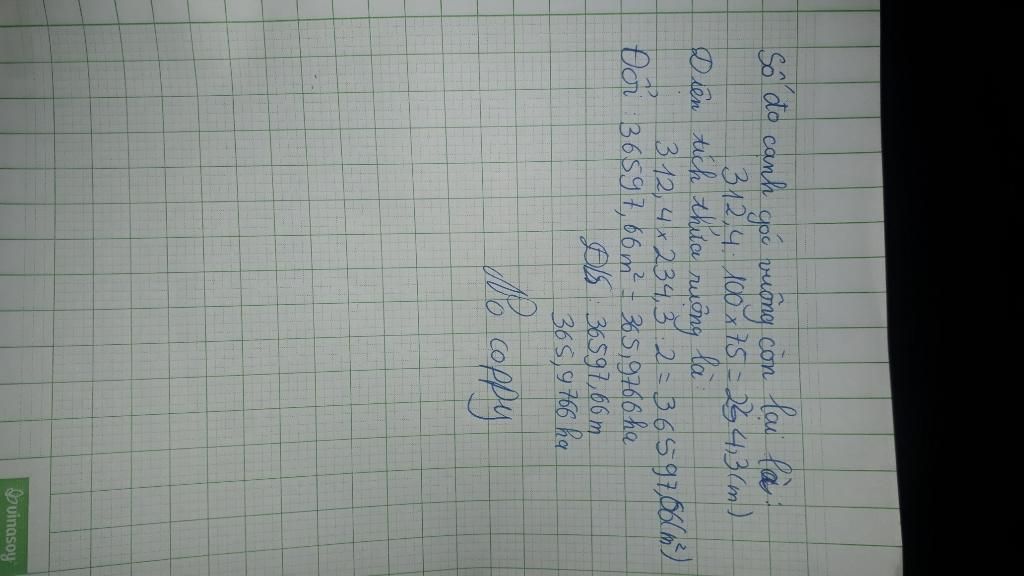 Số đo cạnh góc vuông còn lại là:
312,4 : 100 x 75 = 234,3 (m)
Diện tích thửa ruộng là:
312,4 x 234,3 : 2 = 36597,66 (m²)
Đổi : 36597,66 m² = 365,9766 ha
Đ/S : 36597,66 m
365,9766 ha
No coppy
vinasoy